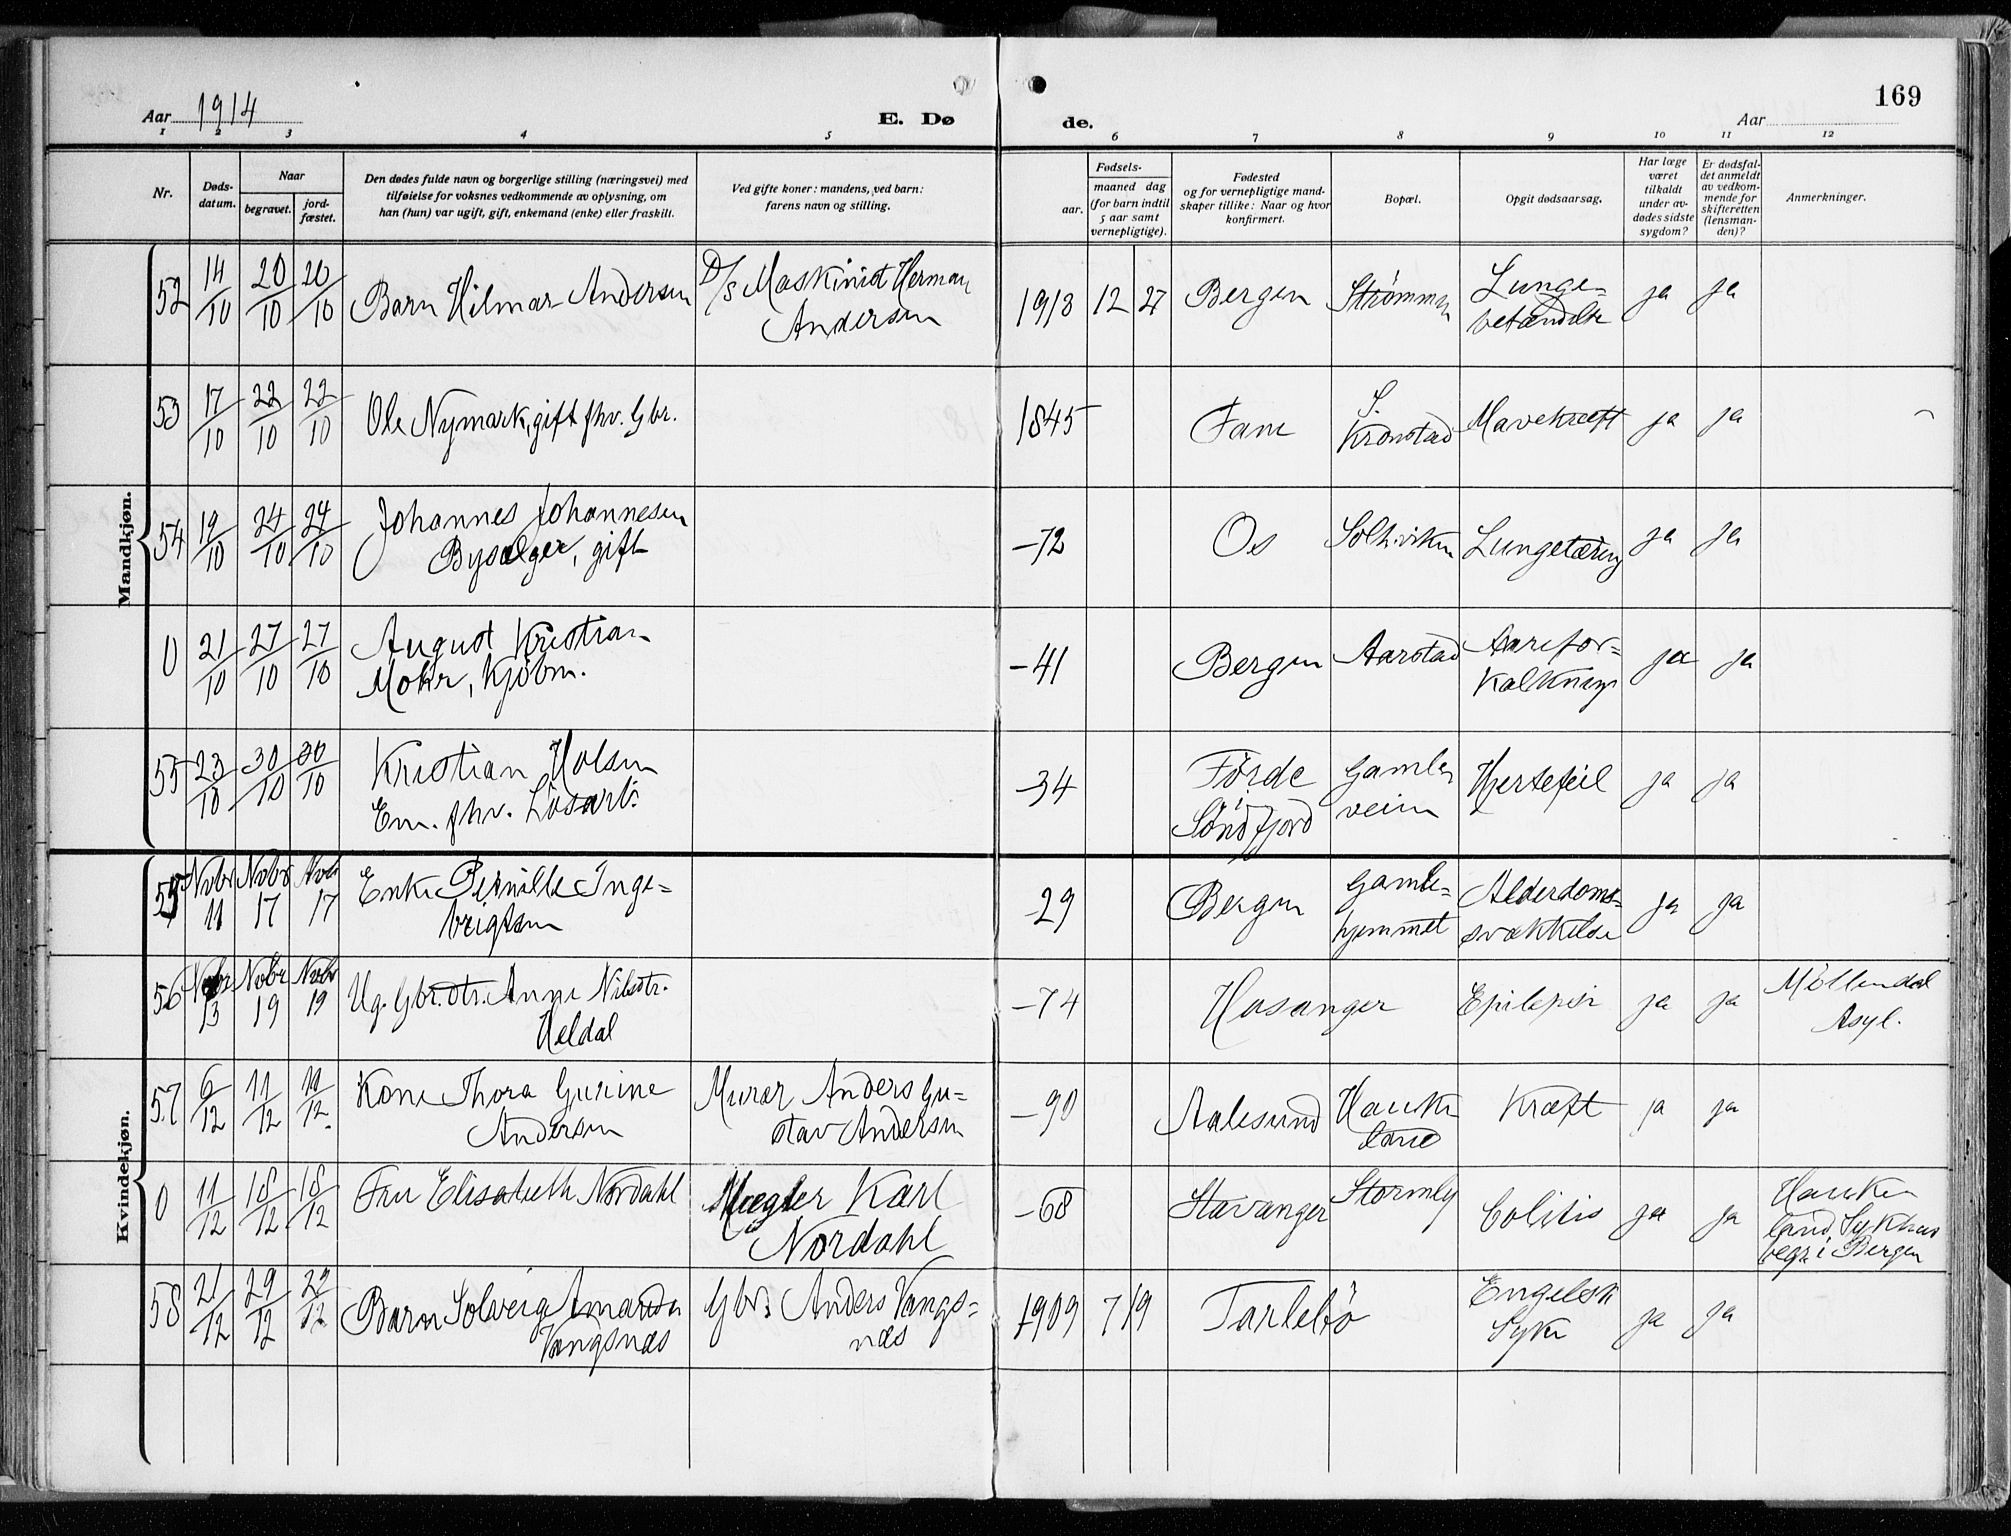 Aar 1914
E. Dø de.
169
Aar
1 2 3 4 5 6 7 8 9 10 11 12
Nr.
Døds-
datum.
Naar
begravet. jord-
fæstet.
Den dødes fulde navn og borgerlige stilling (næringsvei) med
tilføielse for voksnes vedkommende av oplysning, om
han (hun) var ugift, gift, enkemand (enke) eller fraskilt.
Ved gifte koner: mandens, ved barn:
farens navn og stilling.
Fødsels-
aar. maaned dag
(for barn indtil
5 aar samt
vernepligtige).
Fødested
og for vernepligtige mand-
skaper tillike: Naar og hvor
konfirmert.
Bopæl.
Opgit dødsaarsag.
Har læge
været
tilkaldt
under av-
dødes sidste
sygdom?
Er dødsfal-
det anmeldt
av vedkom-
mende for
skifteretten
(lensman-
den)?
Anmerkninger.
Mandkjøn.
52 14/10 20/10 20/10 Barn Hilmar Andersen D/S Maskinist Herman
Andersen 1913 12 27 Bergen Strømmen Lunge-
betændelse ja ja
53 17/10 22/10 22/10 Ole Nymark, gift fhv. Gbr. 1845 Fane S.
Kronstad Mavekræft ja ja
54 19/10 24/10 24/10 Johannes Johannesen
Bysælger, gift -72 Os Solhviken Lungetæring ja ja
0 21/10 27/10 27/10 August Kristian
Mohr, Kjøbm. -41 Bergen Aarstad Aarefor-
kalkning ja ja
55 23/10 30/10 30/10 Kristian Holsen
Em. fhv. Løsarb: -34 Førde
Søndfjord Gamle
veien Hjertefeil ja ja
Kvindekjøn.
55 Novbr 11 Novbr 17 Novbr 17 Enke Pernille Inge-
brigtsen -29 Bergen Gamle-
hjemmet Alderdoms-
svækkelse ja ja
56 Novbr 13 Novbr 19 Novbr 19 Ug. Gbr.dtr. Anne Nilsdtr.
Heldal -74 Hosanger Epilepsi ja ja Möllendal
Asyl.
57 6/12 11/12 11/12. Kone Thora Gurine
Andersen Murer Anders Gu-
stav Andersen -90 Aalesund Hauke
land Kræft ja ja
0 11/12 18/12 18/12 Fru Elisabeth Nordahl Mægler Karl
Nordahl -68 Stavanger Stormly Colitis ja ja Hauke
land Sykehus
begr. i Bergen
58 21/12 29/12 29/12 Barn Solveig Amanda
Vangsnæs Gbr. Anders Vangs-
næs 1909 7 19 Tarlebø Engelsk
Syke ja ja